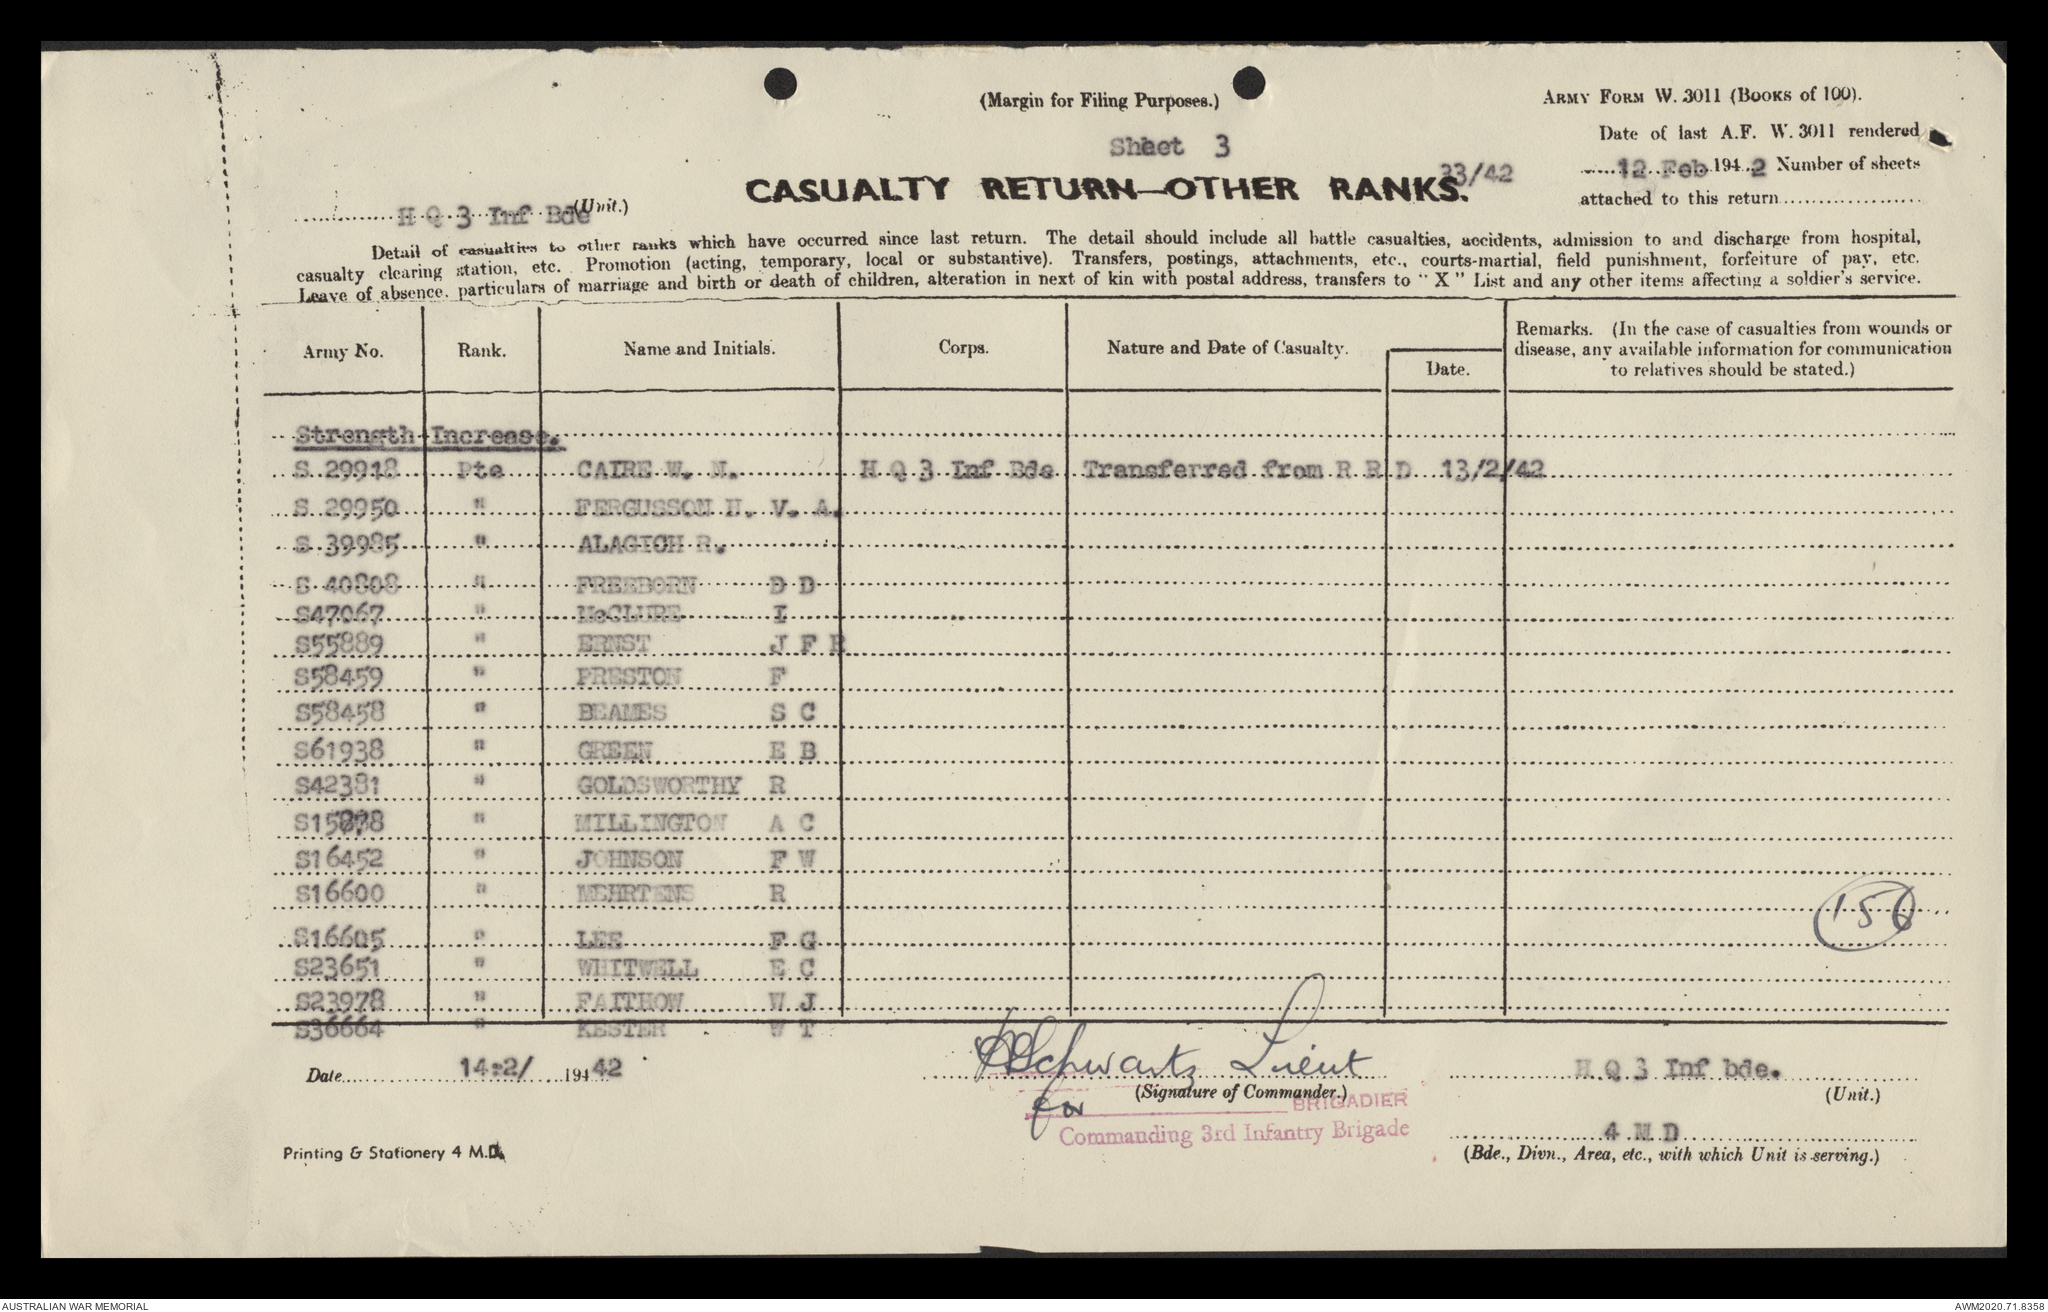 (Margin for Filing Purposes.)
ARMY FORM W. 3011 (BOOKS of 100).
Date of last A.F. W. 3011 rendered
Sheet 3
12 Feb 1942 Number of sheets
attached to this return
CASUALTY RETURN—OTHER RANKS. 33/42
H Q 3 Inf Bde (Unit.)
Detail of casualties to other ranks which have occurred since last return. The detail should include all battle casualties, accidents, admission to and discharge from hospital,
casualty clearing station, etc. Promotion (acting, temporary, local or substantive). Transfers, postings, attachments, etc., courts-martial, field punishment, forfeiture of pay, etc.
Leave of absence, particulars of marriage and birth or death of children, alteration in next of kin with postal address, transfers to "X" List and any other items affecting a soldier's service.
Army No. Rank. Name and Initials. Corps. Nature and Date of Casualty. Date. Remarks. (In the case of casualties from wounds or
disease, any available information for communication
to relatives should be stated.)
Strength Increase.
S 29918 Pte CAIRE W. N. H Q 3 Inf Bde Transferred from R R D 13/2/42
S 29950 " FERGUSSON H. V. A.
S 39985 " ALAGICH R.
S 40808 " FREEBORN D D
S47067 " McCLURE I
S55889 " ERNST J F R
S58459 " PRESTON F
S58458 " BEAMES S C
S61938 " GREEN E B
S42381 " GOLDSWORTHY R
" MILLINGTON A C
S16452 " JOHNSON F W
S16600 " MEHRTENS R
156
S16605 " LEE F G
S23651 " WHITWELL E C
S23978 " FAITHOW W J
S36664 " KESTER W T
Date 14:2/ 1942
Schwartz Lieut
(Signature of Commander.)
H Q 3 Inf bde.
(Unit.)
for BRIGADIER
Commanding 3rd Infantry Brigade
4 M D
(Bde., Divn., Area, etc., with which Unit is serving.)
Printing & Stationery 4 M.D.
AUSTRALIAN WAR MEMORIAL
AWM2020.71.8358